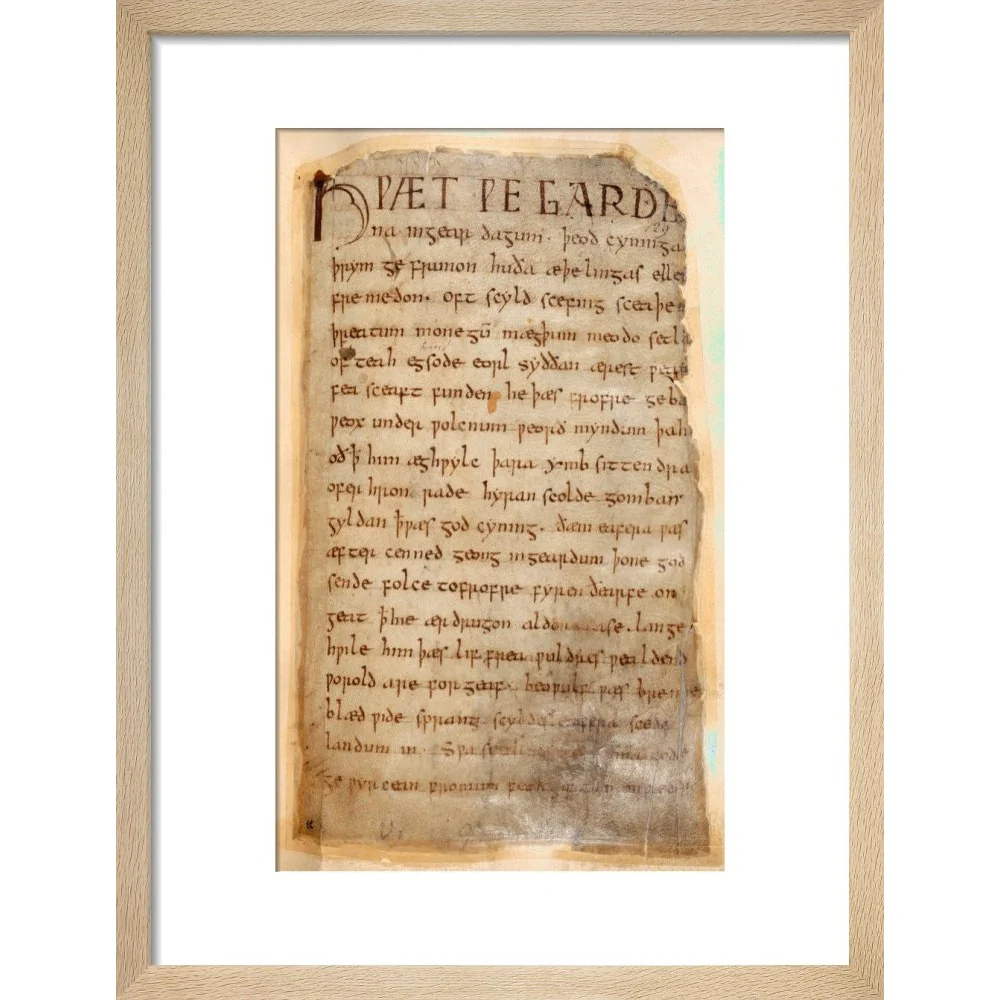 HǷÆT ǷE GARDE
na ingear dagum. þeod cyninga
þrym ge frunon huða æþelingas elle
fremedon. oft scyld scefing sceaþe
þreatum monegū mægþum meodo setla
of teah egsode eorl syððan ærest ƿear
fea sceaft funden he þæs frofre geba
ƿeox under ƿolcnum ƿeorð myndum þah
oð ꝥ him æghƿylc þara ymb sittendra
ofer hron rade hyran scolde gomban
gyldan ꝥ ƿæs god cyning. ðæm eafera ƿæs
æfter cenned geong ingeardum þone god
sende folce tofrofre fyren ðearfe on
geat ꝥ hie ær drugon aldor ase. lange
hƿile him þæs lif frea ƿuldres ƿealdend
ƿorold are for geaf. beoƿulf ƿæs breme
blæd ƿide sprang scyldes eafera scede
landum in. Sƿa
ge ƿyrcean fromum feoh